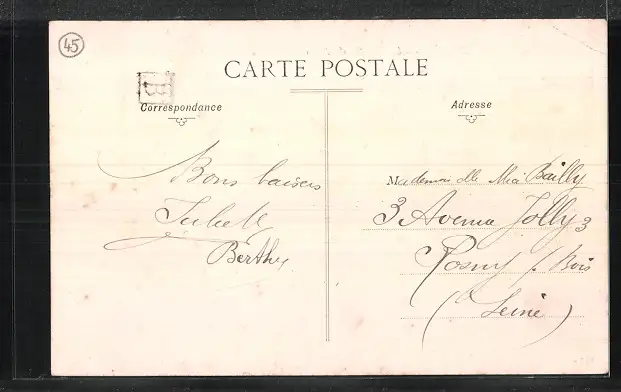 45
CARTE POSTALE
B
Correspondance
Adresse
Bons baisers
Juliette
Berthe
Mademoiselle Mia Bailly
3 Avenue Jolly 3
Rosny s/ Bois
(Seine)